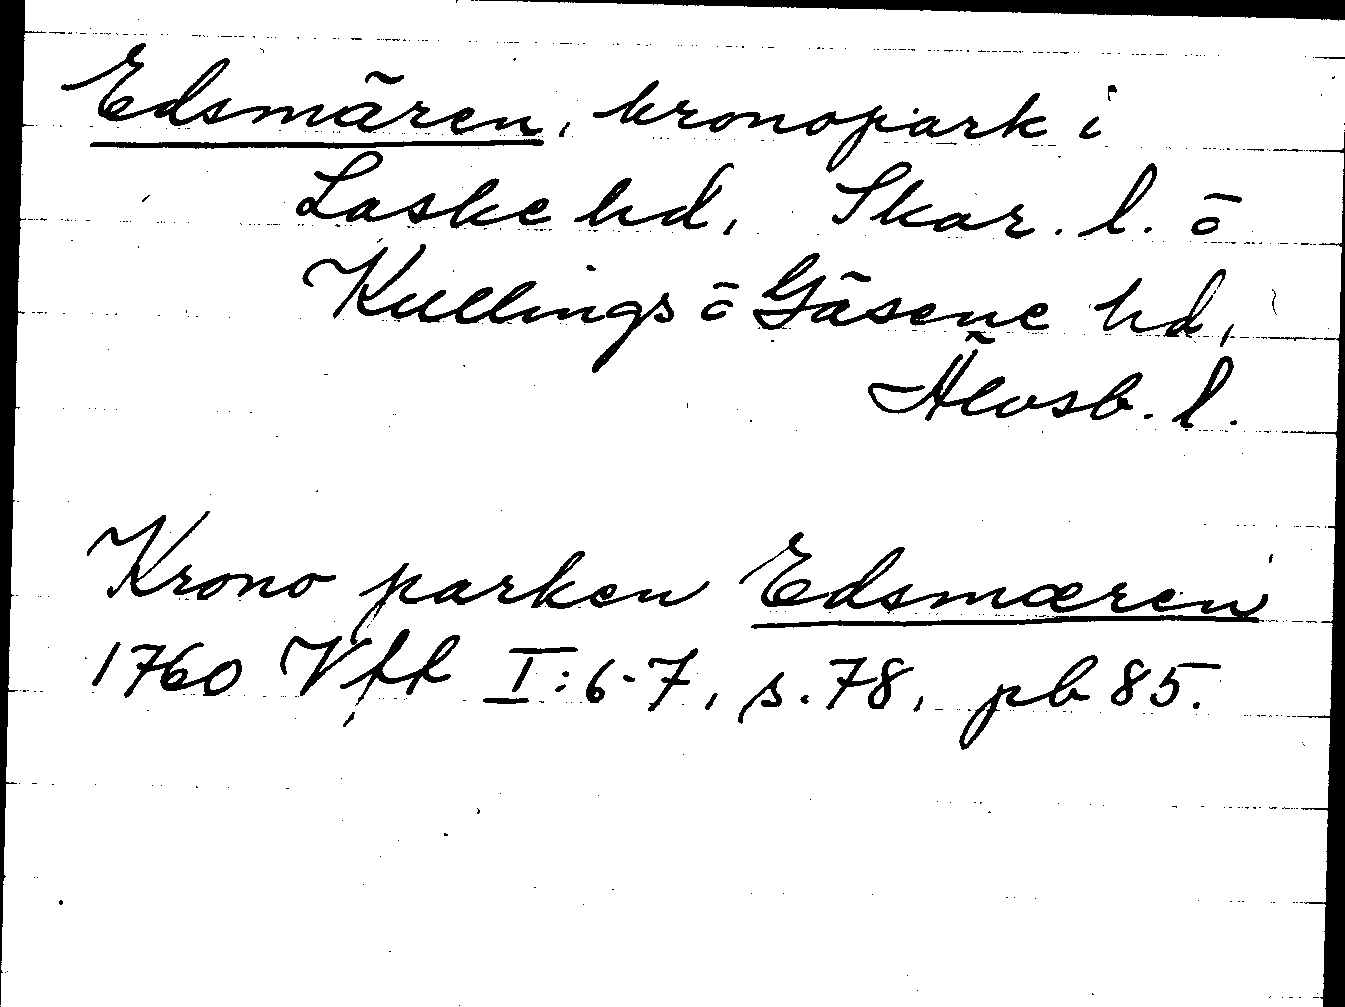 Edsmären, kronopark i
Laske hd, Skar. l. o
Kullings o Gäsene hd,
Älvsb. l.
Krono parken Edsmæren
1760 Vff I:6-7, s. 78, pb 85.